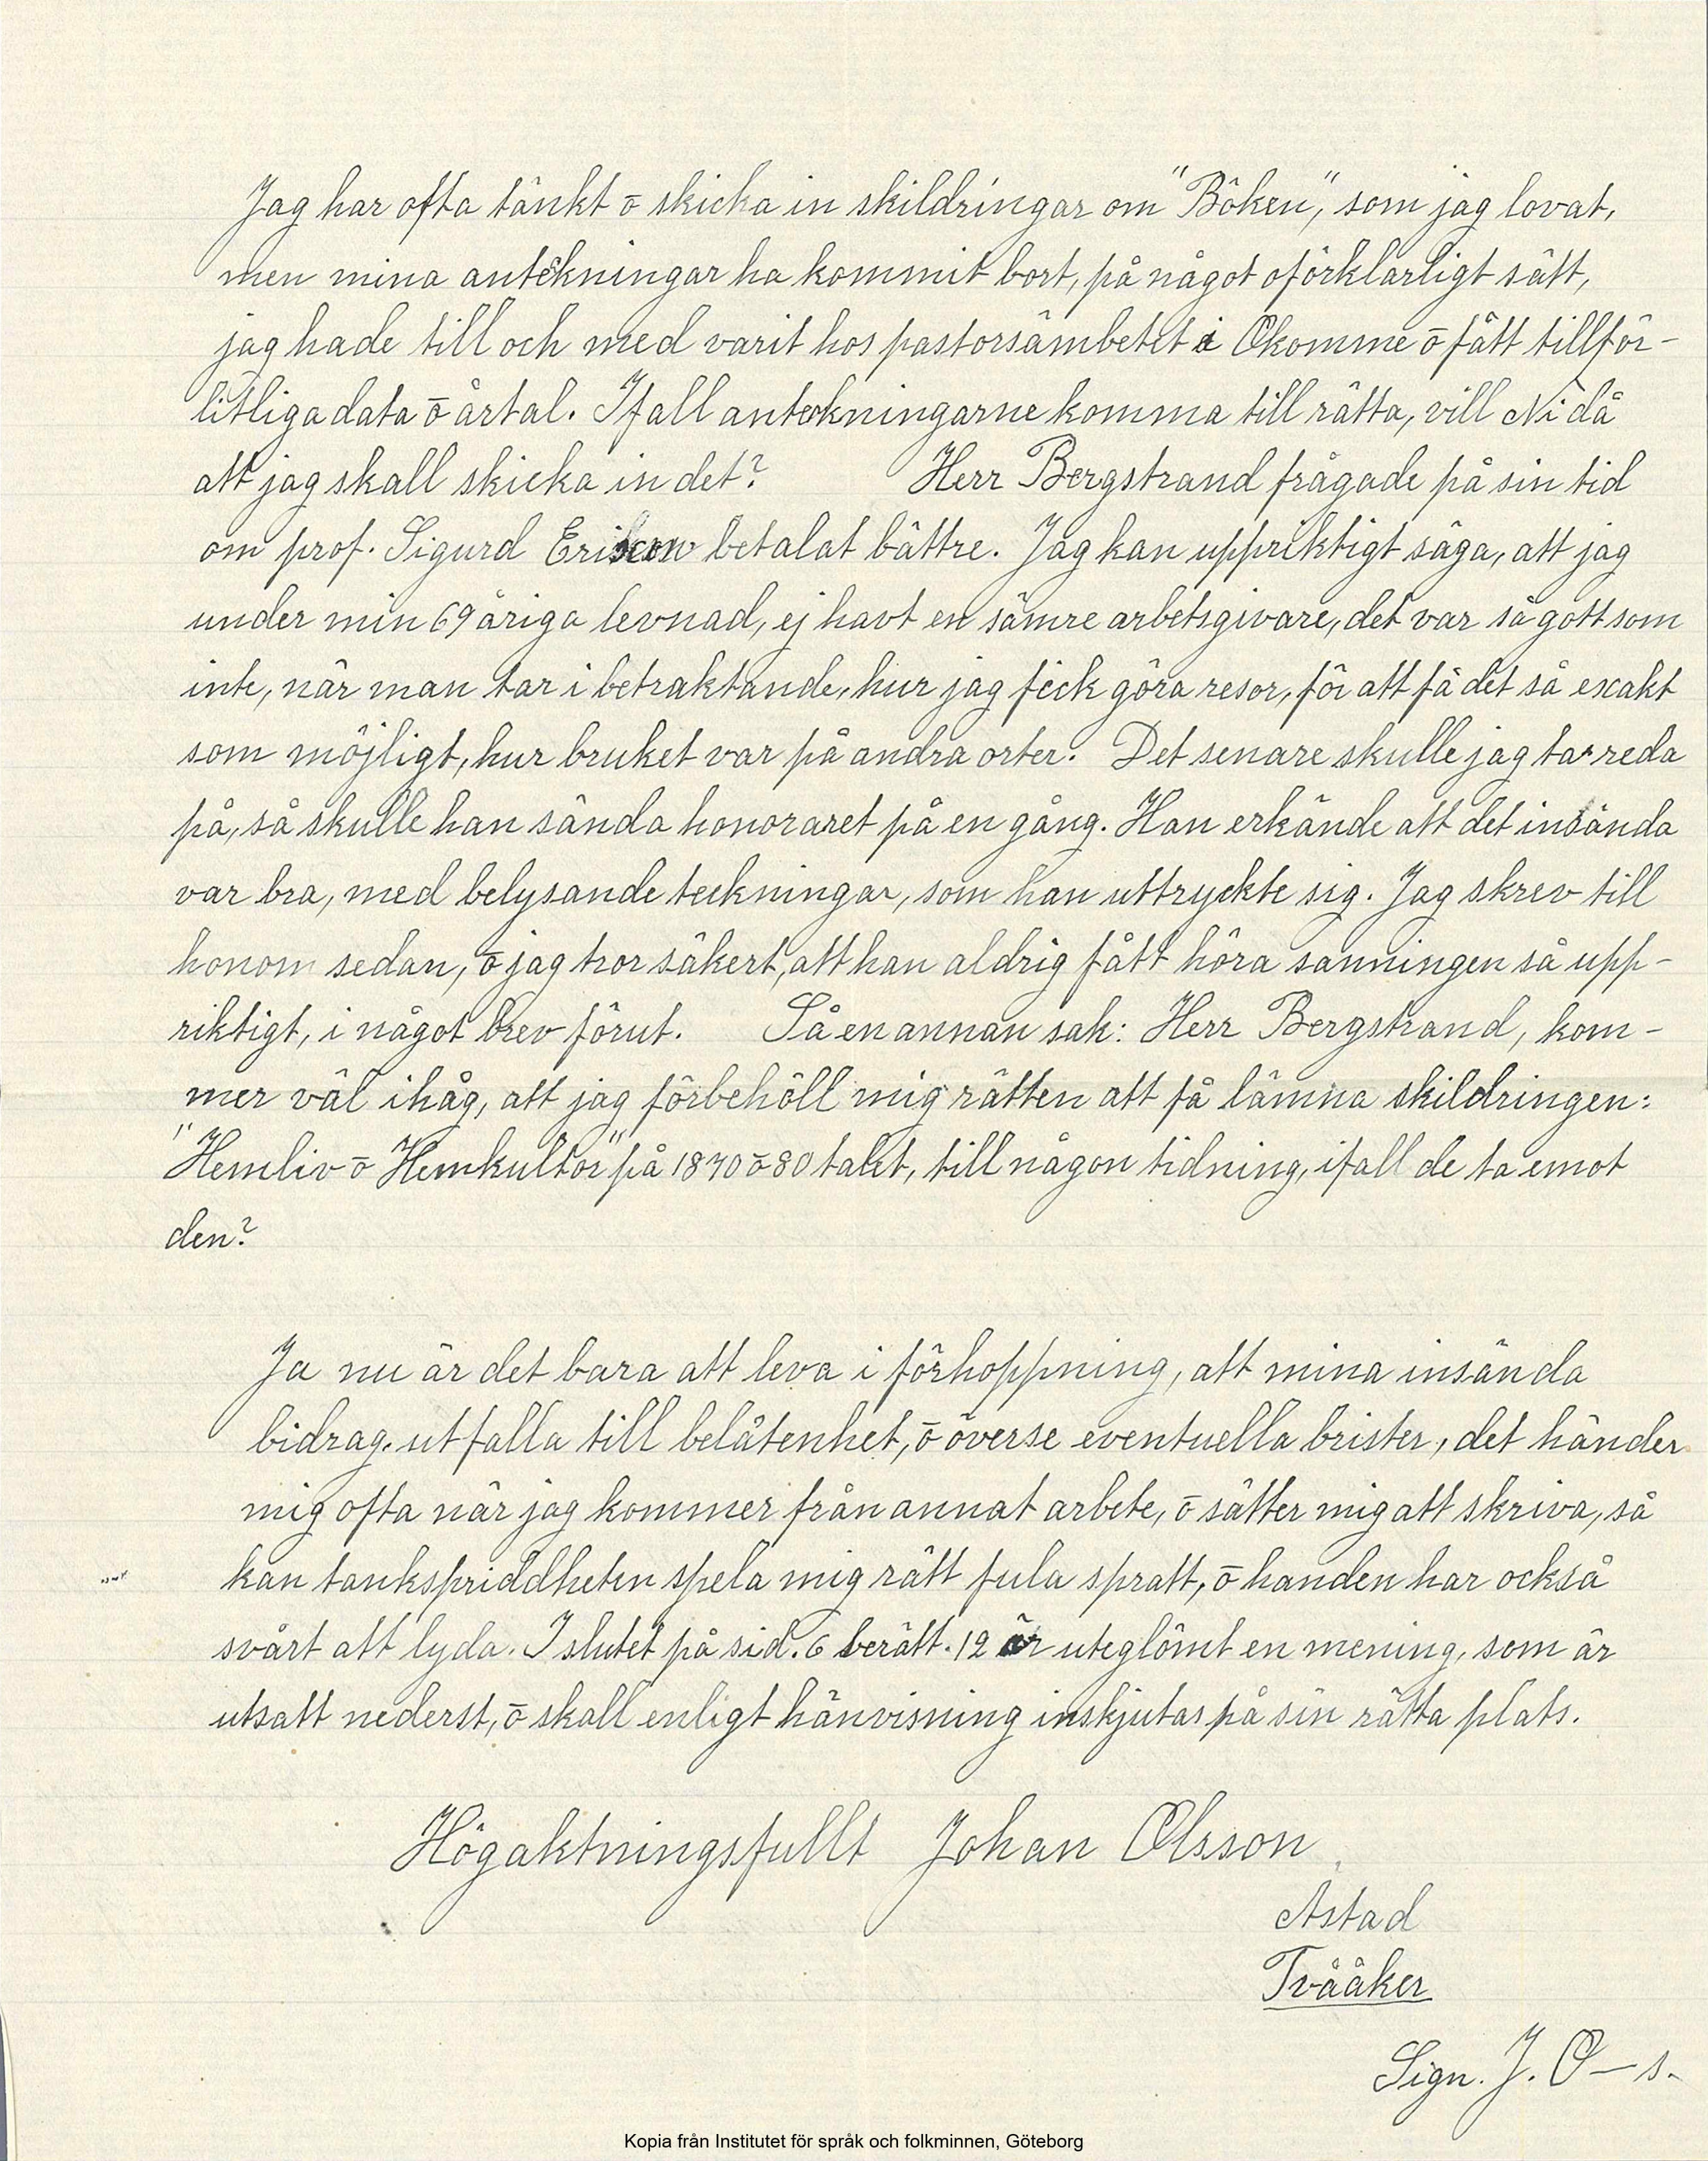 Jag har ofta tänkt ō skicka in skildringar om "Böken", som jag lovat,
men mina anteckningar ha kommit bort, på något oförklarligt sätt,
jag hade till och med varit hos pastorsämbetet i Okomme ō fått tillför-
litliga data ō årtal. Ifall anteckningarne komma till rätta, vill Ni då
att jag skall skicka in det? Herr Bergstrand frågade på sin tid
om prof. Sigurd Erixon betalat bättre. Jag kan uppriktigt säga, att jag
under min 69 åriga levnad, ej havt en sämre arbetsgivare, det var så gott som
inte, när man tar i betraktande, hur jag fick göra resor, för att få det så exakt
som möjligt, hur bruket var på andra orter. Det senare skulle jag ta reda
på, så skulle han sända honoraret på en gång. Han erkände att det insända
var bra, med belysande teckningar, som han uttryckte sig. Jag skrev till
honom sedan, ō jag tror säkert, att han aldrig fått höra sanningen så upp-
riktigt, i något brev förut. Så en annan sak: Herr Bergstrand, kom-
mer väl ihåg, att jag förbehöll mig rätten att få lämna skildringen:
"Hemliv ō Hemkultur" på 1870 ō 80 talet, till någon tidning, ifall de ta emot
den?
Ja nu är det bara att leva i förhoppning, att mina insända
bidrag utfalla till belåtenhet, ō överse eventuella brister, det händer
mig ofta när jag kommer från annat arbete, ō sätter mig att skriva, så
kan tankspriddheten spela mig rätt fula spratt, ō handen har också
svårt att lyda. I slutet på sid. 6 berätt. 12 är uteglömt en mening, som är
utsatt nederst, ō skall enligt hänvisning inskjutas på sin rätta plats.
Högaktningsfullt Johan Olsson
Astad
Tvååker
Sign. J. O–s.
Kopia från Institutet för språk och folkminnen, Göteborg